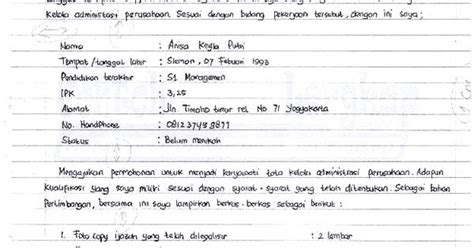 Kelola administrasi perusahaan sesuai dengan bidang pekerjaan tersebut, dengan ini saya;
Nama : Anisa Keyla Putri
Tempat/tanggal lahir : Sleman, 07 Februari 1993
Pendidikan terakhir : S1 Manajemen
IPK : 3,25
Alamat : Jln. Timoho timur rel No. 71 Yogyakarta
No. Handphone : 081237458877
Status : Belum menikah
Mengajukan permohonan untuk menjadi karyawati tata kelola administrasi perusahaan. Adapun
kualifikasi yang saya miliki sesuai dengan syarat-syarat yang telah ditentukan. Sebagai bahan
Pertimbangan, bersama ini saya lampirkan berkas-berkas sebagai berikut :
1. Foto copy ijazah yang telah dilegalisir : 2 lembar